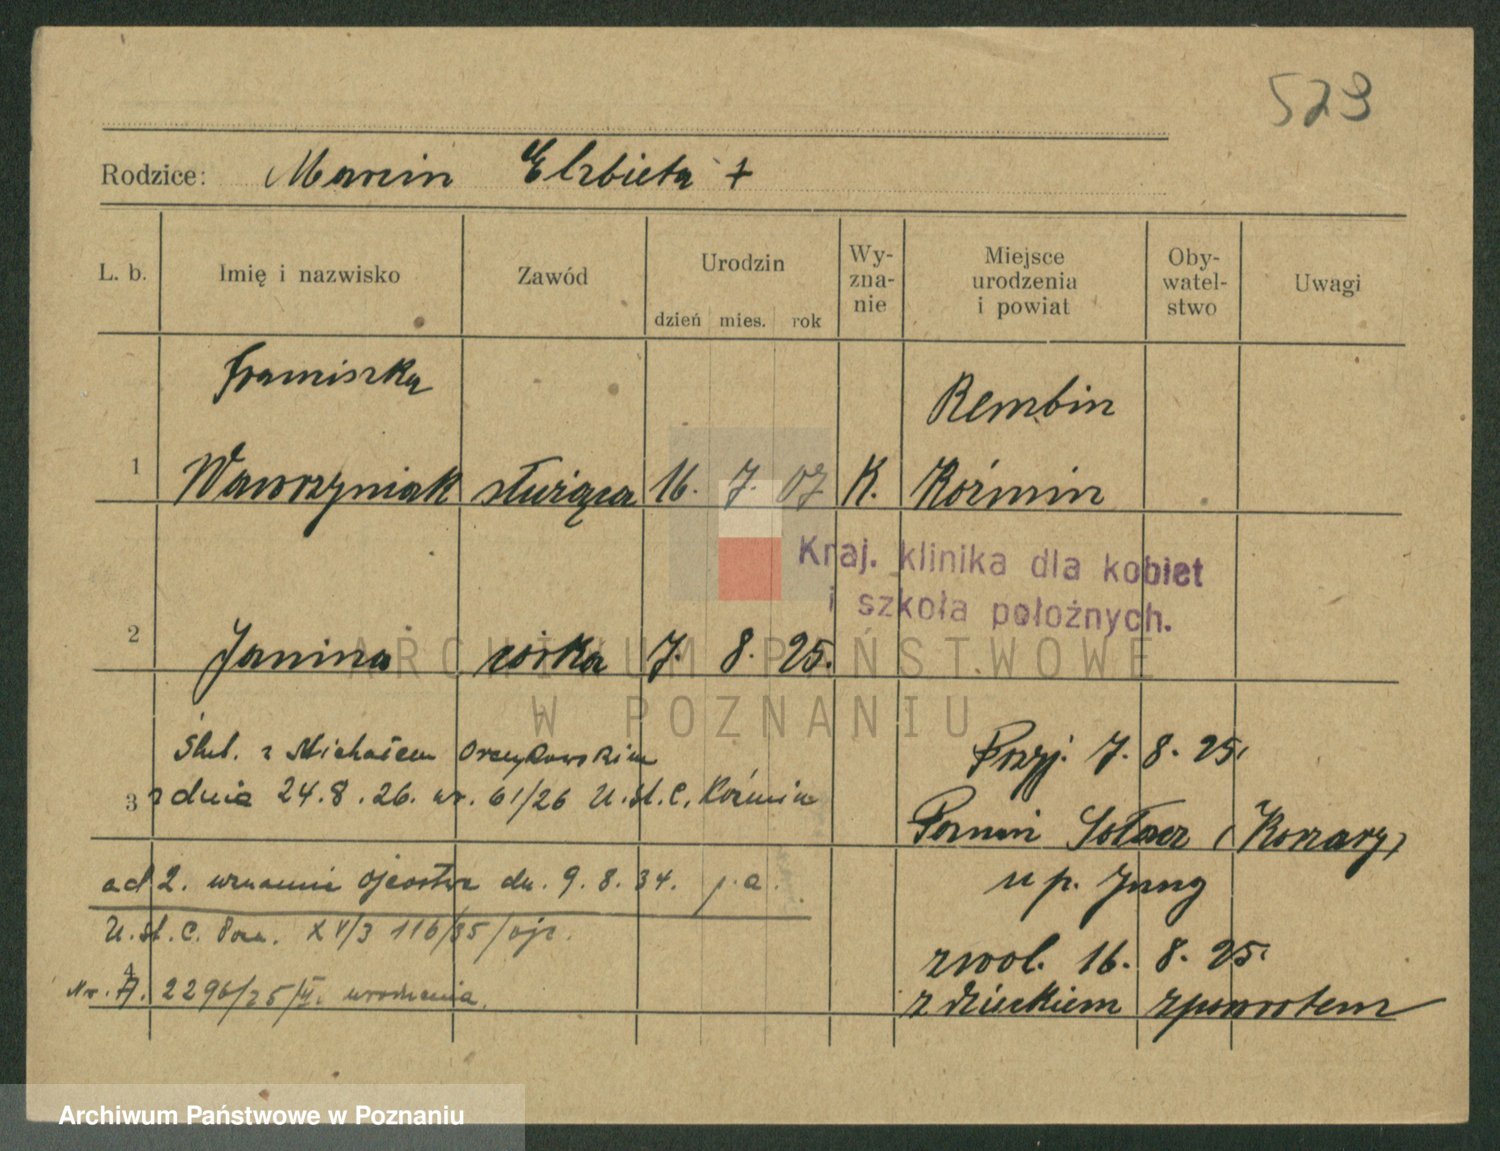 523
Rodzice: Marcin Elzbieta +
L. b. Imię i nazwisko Zawód Urodzin Wy-zna-nie Miejsce urodzenia i powiat Oby-watel-stwo Uwagi
dzień mies. rok
Franciszka Rembin
1 Wawrzyniak służąca 16. 7. 07 K. Koźmin
Kraj. klinika dla kobiet
i szkoła położnych.
2 Janina córka 7. 8. 25.
ARCHIWUM PAŃSTWOWE
W POZNANIU
Ślub. z Michałem Przyj. 7. 8. 25.
3 z dnia 24.8.26. nr. 61/26 U.St.C. Koźmin
Poznań Sołacz (Konary)
ad 2. uznanie ojcostwa dn. 9. 8. 34.
u p. Jung
U.St.C. Pozn. XV/3 116/35/ojc.
zwol. 16. 8. 25.
4
Nr. A. 2296/25/II. urodzenia.
z dzieckiem zpowrotem
Archiwum Państwowe w Poznaniu